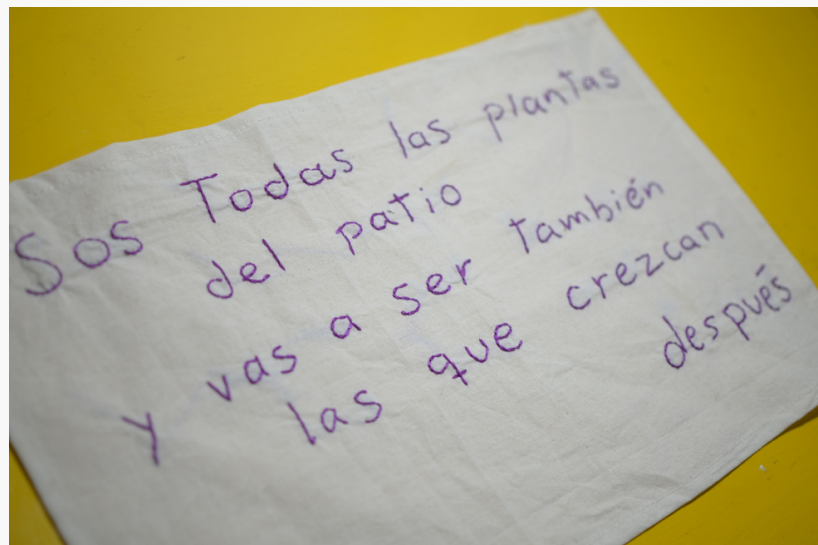 Sos Todas las plantas
del patio
y vas a ser también
las que crezcan
después